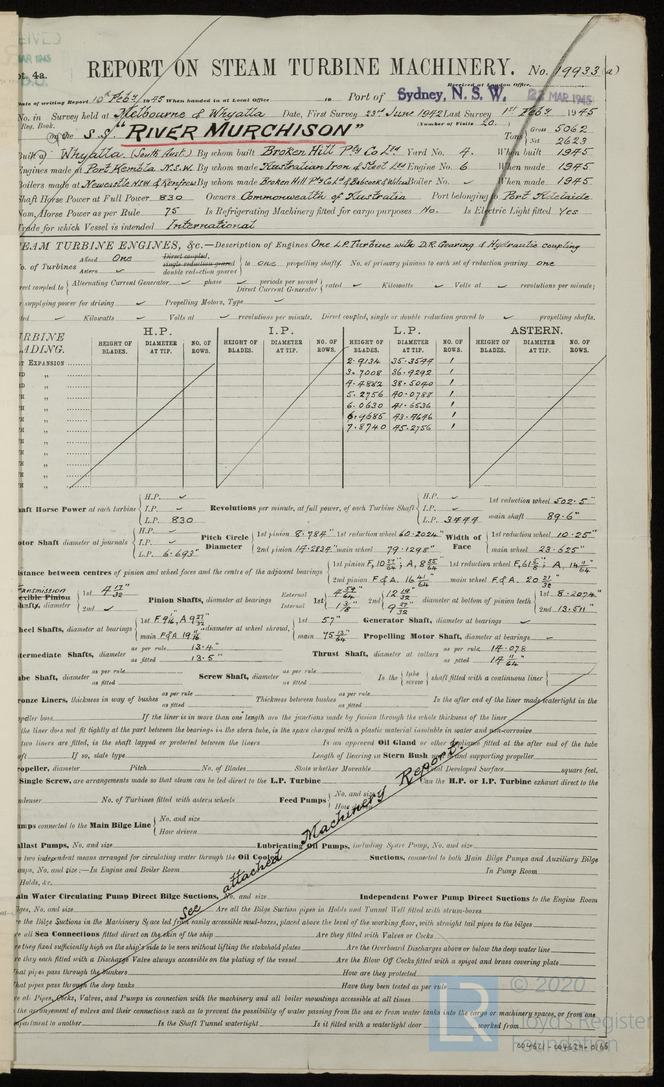 pt. 4a.
REPORT ON STEAM TURBINE MACHINERY. No. 19933 (a)
Received at London Office
Date of writing Report 10th Feby 1945 When handed in at Local Office 19 Port of Sydney, N. S. W. MAR 1945
No. in Survey held at Melbourne & Whyalla Date, First Survey 23rd June 1942 Last Survey 1st Feby 1945
Reg. Book. (Number of Visits 20.)
on the S.S. "RIVER MURCHISON" Tons Gross 5062
Net 2623
Built at Whyalla (South Aust.) By whom built Broken Hill Pty Co Ltd Yard No. 4. When built 1945
Engines made at Port Kembla N.S.W. By whom made Australian Iron & Steel Ltd Engine No. 6 When made 1945
Boilers made at Newcastle N.S.W. & Renfrew By whom made Broken Hill Pty Co Ltd & Babcock & Wilcox Boiler No. ✓ When made 1945
Shaft Horse Power at Full Power 830 Owners Commonwealth of Australia Port belonging to Port Adelaide
Nom. Horse Power as per Rule 75 Is Refrigerating Machinery fitted for cargo purposes No. Is Electric Light fitted Yes
Trade for which Vessel is intended International
STEAM TURBINE ENGINES, &c.—Description of Engines One L.P. Turbine with D.R. Gearing & Hydraulic coupling
No. of Turbines Ahead One Direct coupled, single reduction geared double reduction geared to one propelling shafts. No. of primary pinions to each set of reduction gearing one
Astern ✓
direct coupled to Alternating Current Generator ✓ phase ✓ periods per second Direct Current Generator rated ✓ Kilowatts ✓ Volts at ✓ revolutions per minute;
supplying power for driving ✓ Propelling Motors, Type ✓
rated ✓ Kilowatts ✓ Volts at ✓ revolutions per minute. Direct coupled, single or double reduction geared to ✓ propelling shafts.
TURBINE BLADING. H.P. I.P. L.P. ASTERN.
HEIGHT OF BLADES. DIAMETER AT TIP. NO. OF ROWS. HEIGHT OF BLADES. DIAMETER AT TIP. NO. OF ROWS. HEIGHT OF BLADES. DIAMETER AT TIP. NO. OF ROWS. HEIGHT OF BLADES. DIAMETER AT TIP. NO. OF ROWS.
EXPANSION 2.9134 35.3544 1
3.7008 36.9292 1
4.4882 38.5040 1
5.2756 40.0788 1
6.0630 41.6536 1
6.9685 43.4646 1
7.8740 45.2756 1
Shaft Horse Power at each turbine H.P. ✓ I.P. ✓ L.P. 830 Revolutions per minute, at full power, of each Turbine Shaft H.P. ✓ I.P. ✓ L.P. 3444 1st reduction wheel 502.5" main shaft 89.6"
Rotor Shaft diameter at journals H.P. ✓ I.P. ✓ L.P. 6.693" Pitch Circle Diameter 1st pinion 8.784" 1st reduction wheel 60.2024" 2nd pinion 14.2839" main wheel 79.1298" Width of Face 1st reduction wheel 10.25" main wheel 23.625"
Distance between centres of pinion and wheel faces and the centre of the adjacent bearings
Pinion Shafts, diameter at bearings External Internal diameter at bottom of pinion teeth 1st 8.2074" 2nd 13.511"
Wheel Shafts, diameter at bearings diameter at wheel shroud, 1st 57" Generator Shaft, diameter at bearings ✓
Propelling Motor Shaft, diameter at bearings ✓
Intermediate Shafts, diameter as per rule 13.4" as fitted 13.5" Thrust Shaft, diameter at collars as per rule 14.078 as fitted
Tube Shaft, diameter as per rule as fitted Screw Shaft, diameter as per rule as fitted Is the tube screw shaft fitted with a continuous liner
Bronze Liners, thickness in way of bushes as per rule as fitted Thickness between bushes as per rule as fitted Is the after end of the liner made watertight in the
propeller boss If the liner is in more than one length are the junctions made by fusion through the whole thickness of the liner
the liner does not fit tightly at the part between the bearings in the stern tube, is the space charged with a plastic material insoluble in water and non-corrosive
two liners are fitted, is the shaft lapped or protected between the liners Is an approved Oil Gland or other appliance fitted at the after end of the tube
If so, state type Length of Bearing in Stern Bush next to and supporting propeller
Propeller, diameter Pitch No. of Blades State whether Moveable Total Developed Surface square feet.
Single Screw, are arrangements made so that steam can be led direct to the L.P. Turbine Can the H.P. or I.P. Turbine exhaust direct to the
No. of Turbines fitted with astern wheels Feed Pumps No. and size How driven
Pumps connected to the Main Bilge Line No. and size How driven
Ballast Pumps, No. and size Lubricating Oil Pumps, including Spare Pump, No. and size
two independent means arranged for circulating water through the Oil Cooler Suctions, connected to both Main Bilge Pumps and Auxiliary Bilge
Pumps, No. and size:—In Engine and Boiler Room In Pump Room
Holds, &c.
See attached Machinery Report.
Main Water Circulating Pump Direct Bilge Suctions, No. and size Independent Power Pump Direct Suctions to the Engine Room
Bilges, No. and size Are all the Bilge Suction pipes in Holds and Tunnel Well fitted with strum-boxes
the Bilge Suctions in the Machinery Space led from easily accessible mud-boxes, placed above the level of the working floor, with straight tail pipes to the bilges
all Sea Connections fitted direct on the skin of the ship Are they fitted with Valves or Cocks
they fixed sufficiently high on the ship's side to be seen without lifting the stokehold plates Are the Overboard Discharges above or below the deep water line
they each fitted with a Discharge Valve always accessible on the plating of the vessel Are the Blow Off Cocks fitted with a spigot and brass covering plate
What pipes pass through the bunkers How are they protected
What pipes pass through the deep tanks Have they been tested as per rule
all Pipes, Cocks, Valves, and Pumps in connection with the machinery and all boiler mountings accessible at all times
the arrangement of valves and their connections such as to prevent the possibility of water passing from the sea or from water tanks into the cargo or machinery spaces, or from one
compartment to another Is the Shaft Tunnel watertight Is it fitted with a watertight door worked from
LR © 2020
Lloyd's Register
Foundation
004621-004629-0165